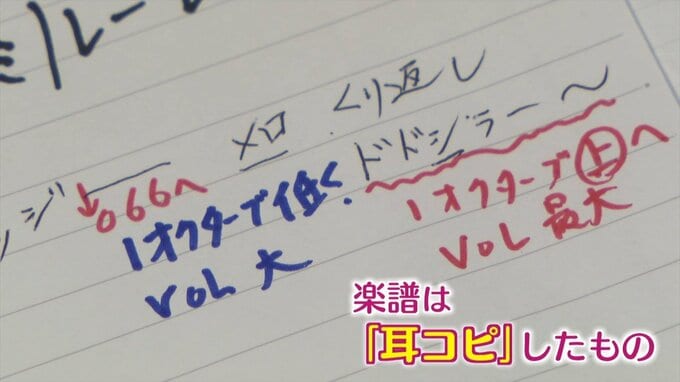 ミ/レー
メロ くり返し
ンジ ↓066へ ドドジラー〜
1オクターブ低く. 1オクターブ上へ
VOL 大 VOL 最大
楽譜は
「耳コピ」したもの